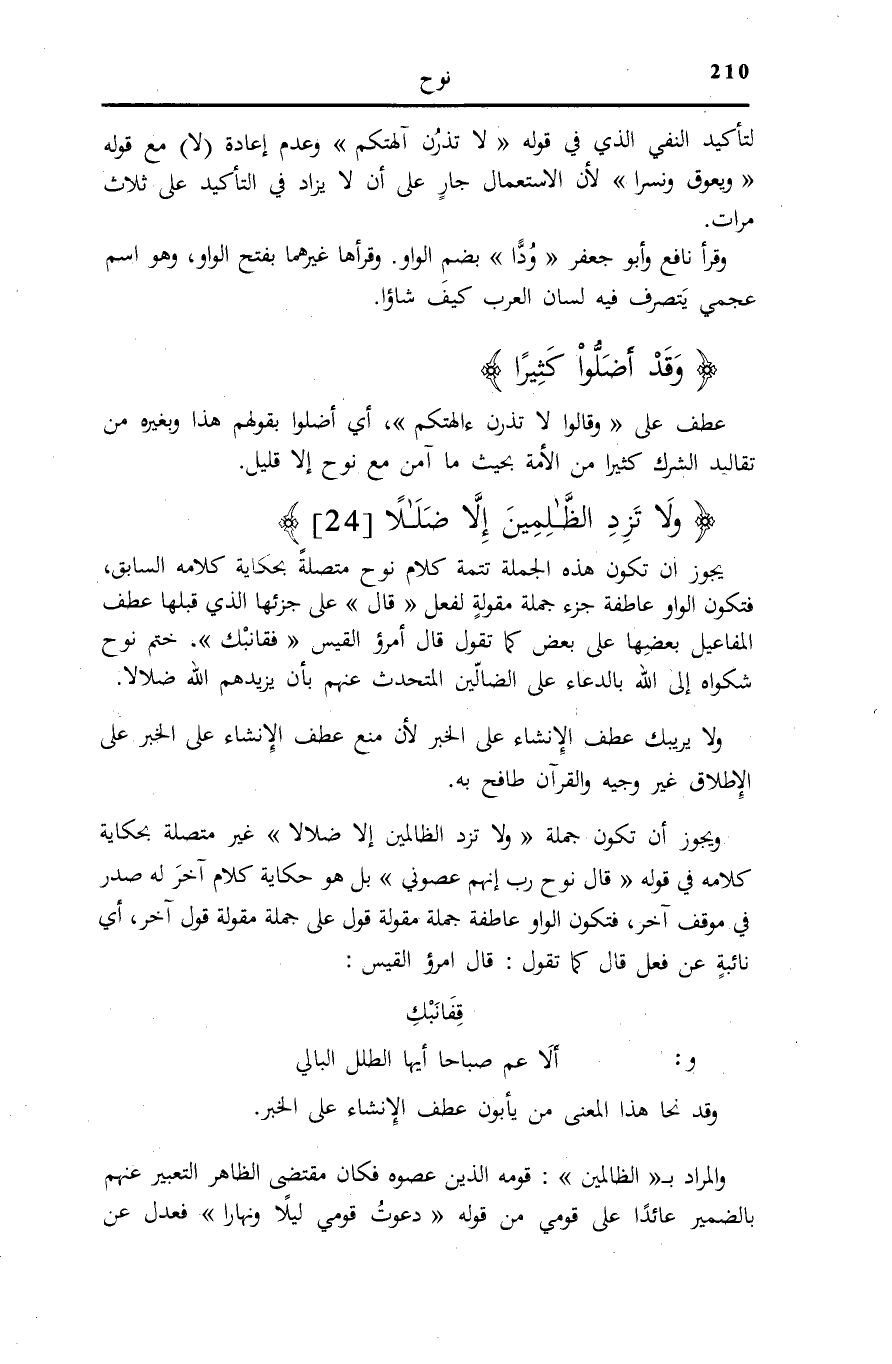 210
نوح
لتأكيد النفي الذي في قوله « لا تذرُن آلهتكم » وعدم إعادة (لا) مع قوله
« ويعوق ونسرا » لأن الاستعمال جارٍ على أن لا يزاد في التأكيد على ثلاث
مرات.
وقرأ نافع وأبو جعفر « وُدًّا » بضم الواو. وقرأها غيرهما بفتح الواو، وهو اسم
عجمي يَتصرف فيه لسان العرب كيفَ شاؤا.
﴿ وَقَدْ أَضَلُّواْ كَثِيرًا ﴾
عطف على « وقالوا لا تذرن ءالهتكم »، أي أضلوا بقولهم هذا وبغيره من
تقاليد الشرك كثيرا من الأمة بحيث ما آمن مع نوح إلا قليل.
﴿ ولَا تَزِدِ الظَّـٰلِمِينَ إِلَّا ضَلَـٰلًا [24] ﴾
يجوز ان تكون هذه الجملة تتمة كلام نوح متصلةً بحكاية كلامه السابق،
فتكون الواو عاطفة جزء جملة مقولةٍ لفعل « قال » على جزئها الذي قبلها عطف
المفاعيل بعضها على بعض كما تقول قال أمرؤ القيس « فقانبْك ». ختم نوح
شكواه إلى الله بالدعاء على الضالّين المتحدث عنهم بأن يزيدهم الله ضلالا.
ولا يريبك عطف الإنشاء على الخبر لأن منع عطف الإنشاء على الخبر على
الإطلاق غير وجيه والقرآن طافح به.
ويجوز أن تكون جملة « ولا تزد الظالمين إلا ضلالا » غير متصلة بحكاية
كلامه في قوله « قال نوح رب إنهم عصوني » بل هو حكاية كلام آخرَ له صدر
في موقف آخر، فتكون الواو عاطفة جملة مقولة قول على جملة مقولة قول آخر، أي
نائبةٍ عن فعل قال كما تقول : قال امرؤ القيس :
قِفَانَبْكِ
و : ألَا عم صباحا أيها الطلل البالي
وقد نحا هذا المعنى من يأبون عطف الإنشاء على الخبر.
والمراد بـ« الظالمين » : قومه الذين عصوه فكان مقتضى الظاهر التعبير عنهم
بالضمير عائدًا على قومي من قوله « دعوتُ قومي ليلًا ونهارا » فعدل عن